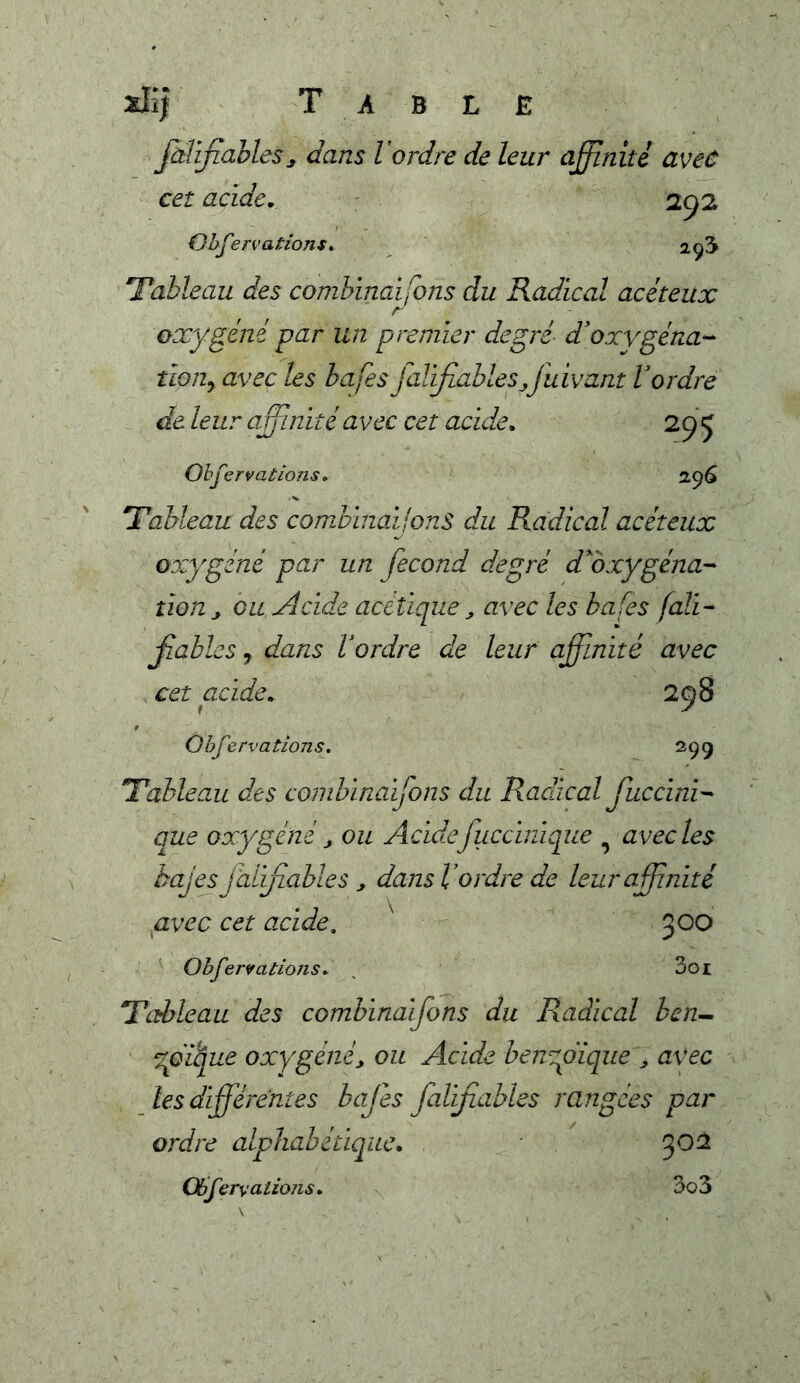 xlij TABLE
ſalifiables, dans l'ordre de leur affinité avec
cet acide. 292
Obſervations. 293
Tableau des combinaiſons du Radical acéteux
oxygéné par un premier degré d'oxygéna-
tion, avec les baſes ſalifiables, ſuivant l'ordre
de leur affinité avec cet acide. 295
Obſervations. 296
Tableau des combinaiſons du Radical acéteux
oxygéné par un ſecond degré d'oxygéna-
tion, ou Acide acétique, avec les baſes ſali-
fiables, dans l'ordre de leur affinité avec
cet acide. 298
Obſervations. 299
Tableau des combinaiſons du Radical ſuccini-
que oxygéné, ou Acide ſuccinique, avec les
baſes ſalifiables, dans l'ordre de leur affinité
avec cet acide. 300
Obſervations. 301
Tableau des combinaiſons du Radical ben-
zoïque oxygéné, ou Acide benzoïque, avec
les différentes baſes ſalifiables rangées par
ordre alphabétique. 302
Obſervations. 303